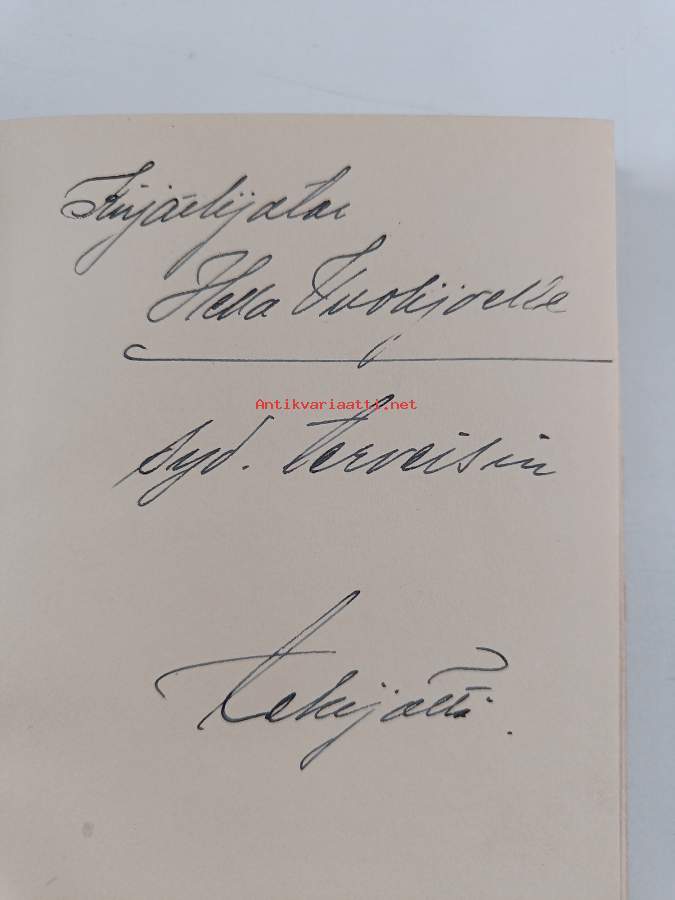 Kirjailijatar
Hella Wuolijoelle
Antikvariaatti.net
syd. terveisin
tekijältä.